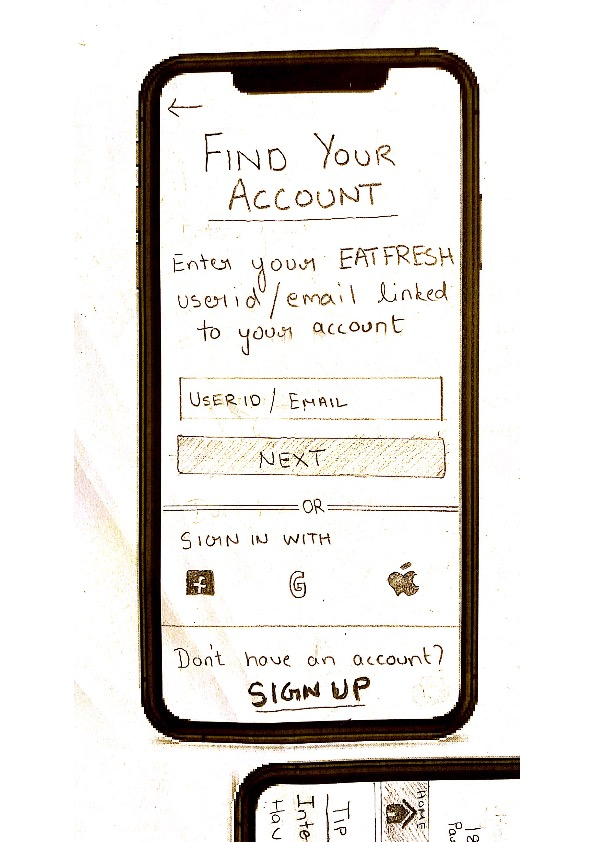 FIND YOUR
ACCOUNT
Enter your EATFRESH
userid/email linked
to your account
USER ID / EMAIL
NEXT
OR
SIGN IN WITH
f
G
Don't have an account?
SIGN UP
HOME
TIP